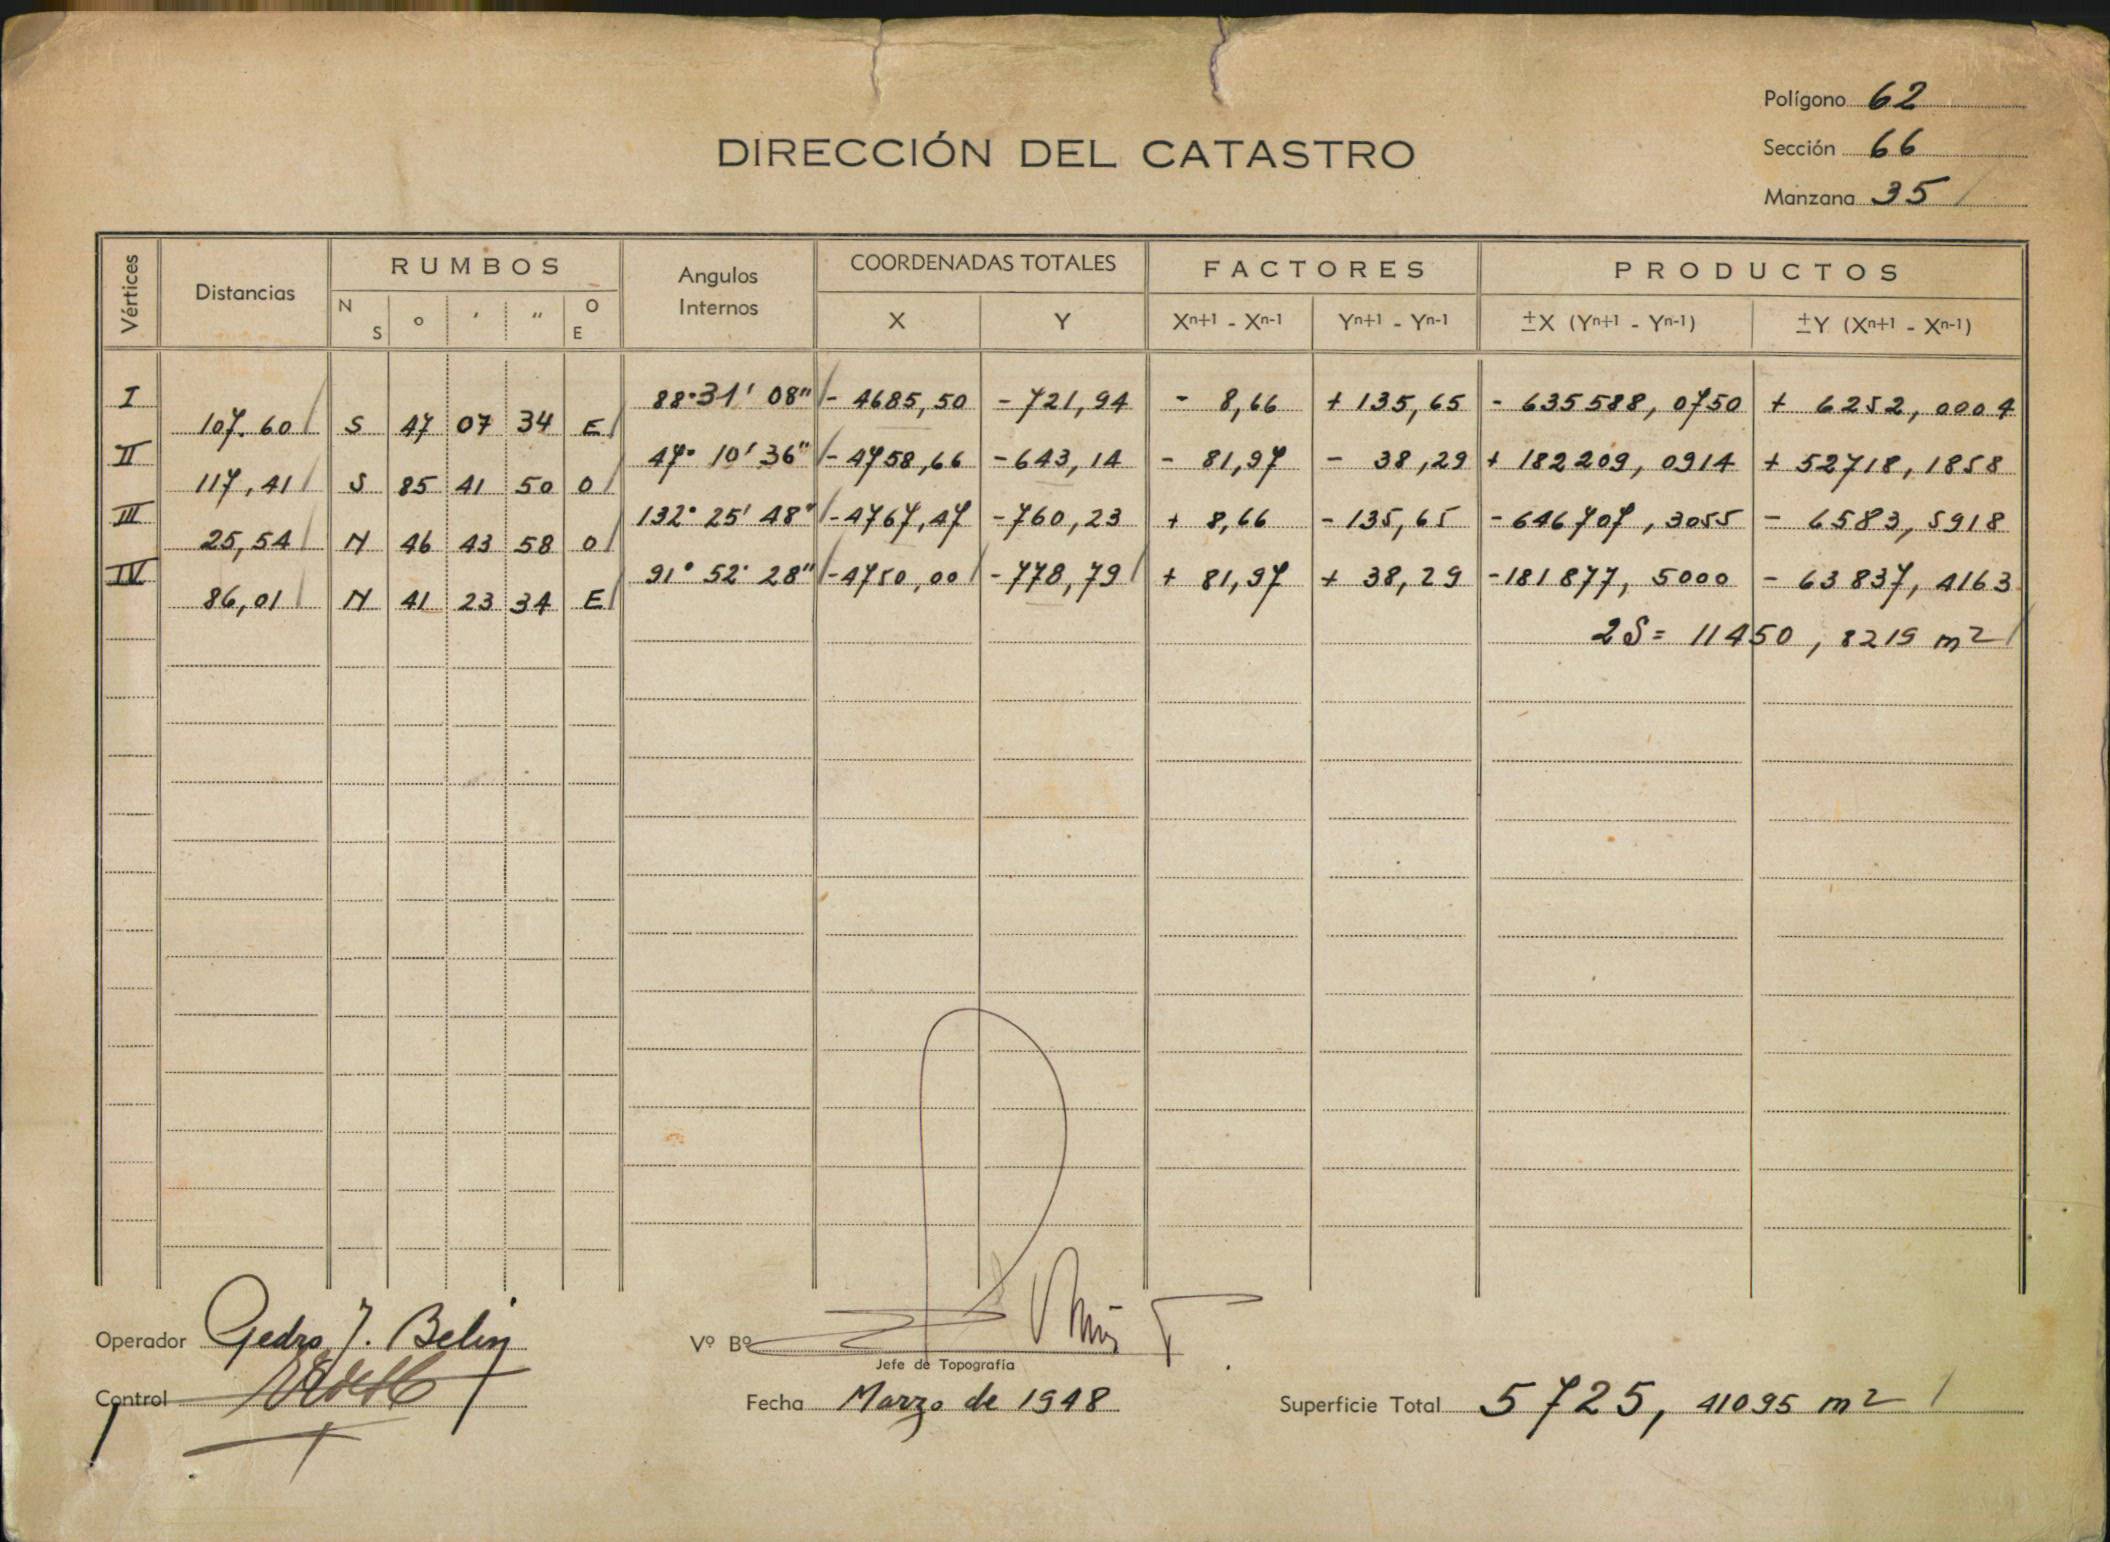 Polígono 62
DIRECCIÓN DEL CATASTRO
Sección 66
Manzana 35
Vértices Distancias RUMBOS Angulos Internos COORDENADAS TOTALES FACTORES PRODUCTOS
N S ° ′ ″ O E X Y Xn+1 - Xn-1 Yn+1 - Yn-1 ±X (Yn+1 - Yn-1) ±Y (Xn+1 - Xn-1)
I 88° 31' 08" - 4685,50 - 721,94 - 8,66 + 135,65 - 635588,0750 + 6252,0004
107.60 S 47 07 34 E
II 47° 10' 36" - 4758,66 - 643,14 - 81,97 - 38,29 + 182209,0914 + 52718,1858
117,41 S 85 41 50 O
III 132° 25' 48" - 4767,47 - 760,23 + 8,66 - 135,65 - 646707,3055 - 6583,5918
25,54 N 46 43 58 O
IV 91° 52' 28" - 4750,00 - 778,79 + 81,97 + 38,29 - 181877,5000 - 63837,4163
86,01 N 41 23 34 E
2S = 11450,8219 m2
Operador Pedro J. Belin
Vº Bº
Jefe de Topografía
Control
Fecha Marzo de 1948
Superficie Total 5725,41095 m2